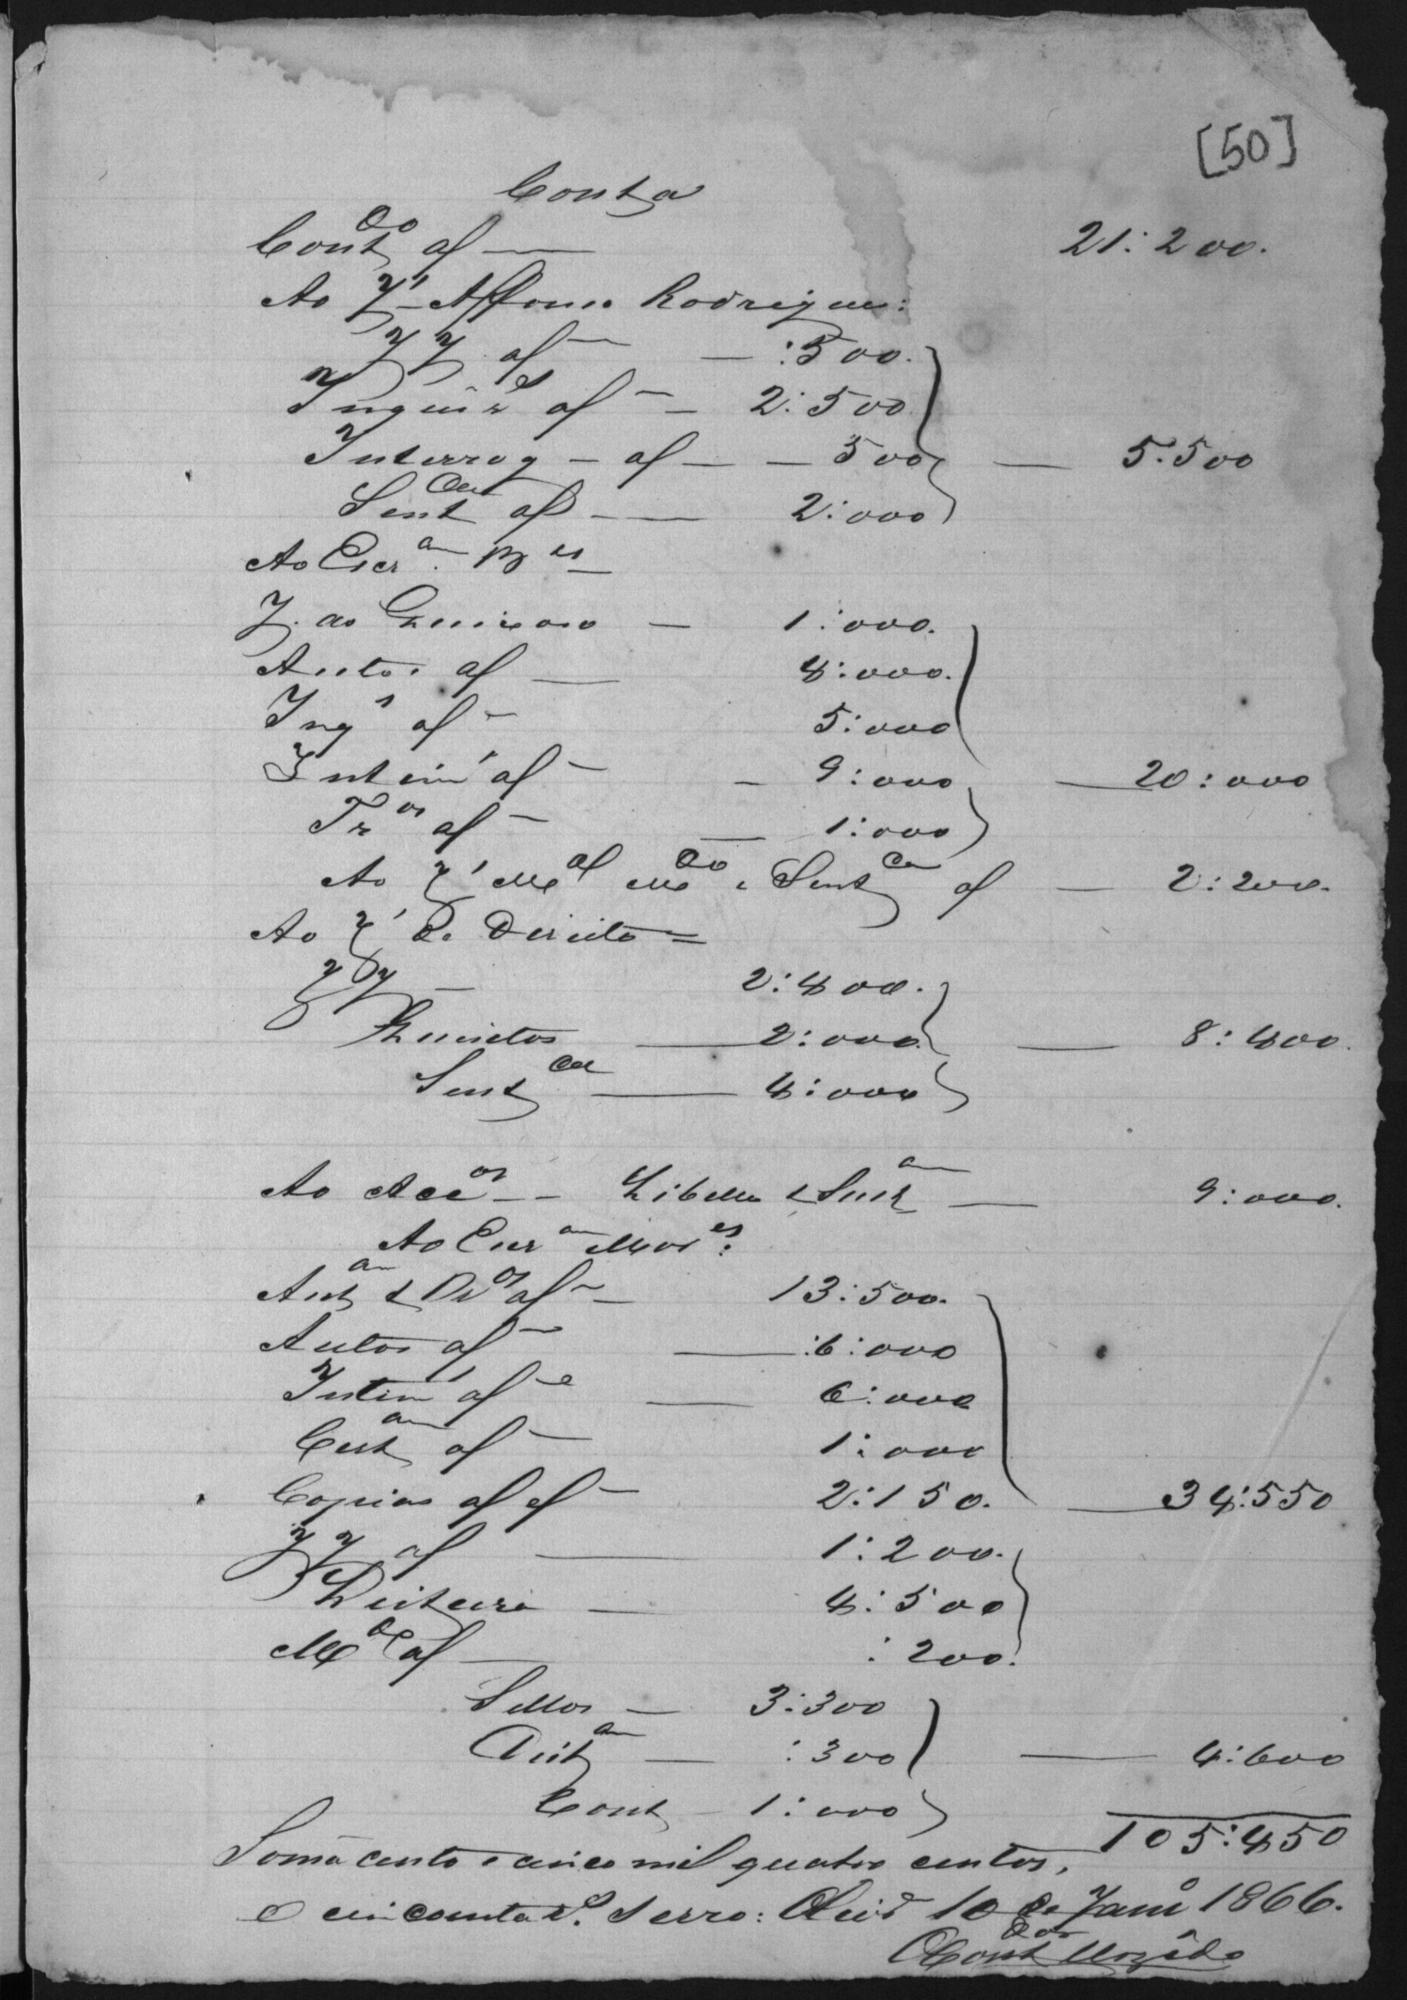 [50]
Conta
Cont.do af — 21:200.
Ao J' Affonso Rodrigues:
JJ. af — :500.
Inquir af — 2:500
Interrog — af — 500 — 5:500
Sent.ca af — 2:000
Ao Escr.am
J. ao — 1:000.
Autos af — 4:000.
Inq' af — 5:000
Intim' af — 9:000 — 20:000
Tr.os af — 1:000
Ao J' M.al M.do e Sent.ca af — 2:200.
Ao J' de Direito =
JJ — 2:400.
Quesitos — 2:000 — 8:400.
Sent.ca — 4:000
Ao — Libello — 9:000.
Ao Escr.am
af — 13:500.
Autos af — :6:000
Intim' af — 6:000
Cert.am af — 1:000
Copias af — 2:150. — 34:550
JJ af — 1:200.
4:500
M.do af — :200.
Sellos — 3:300
:300 — 4:600
Cont — 1:000
105:450
Somã cento e cinco mil quatro centos,
e cincoenta r.s Serro: Cid.e 10 de Jan.o 1866.
O Cont.dor